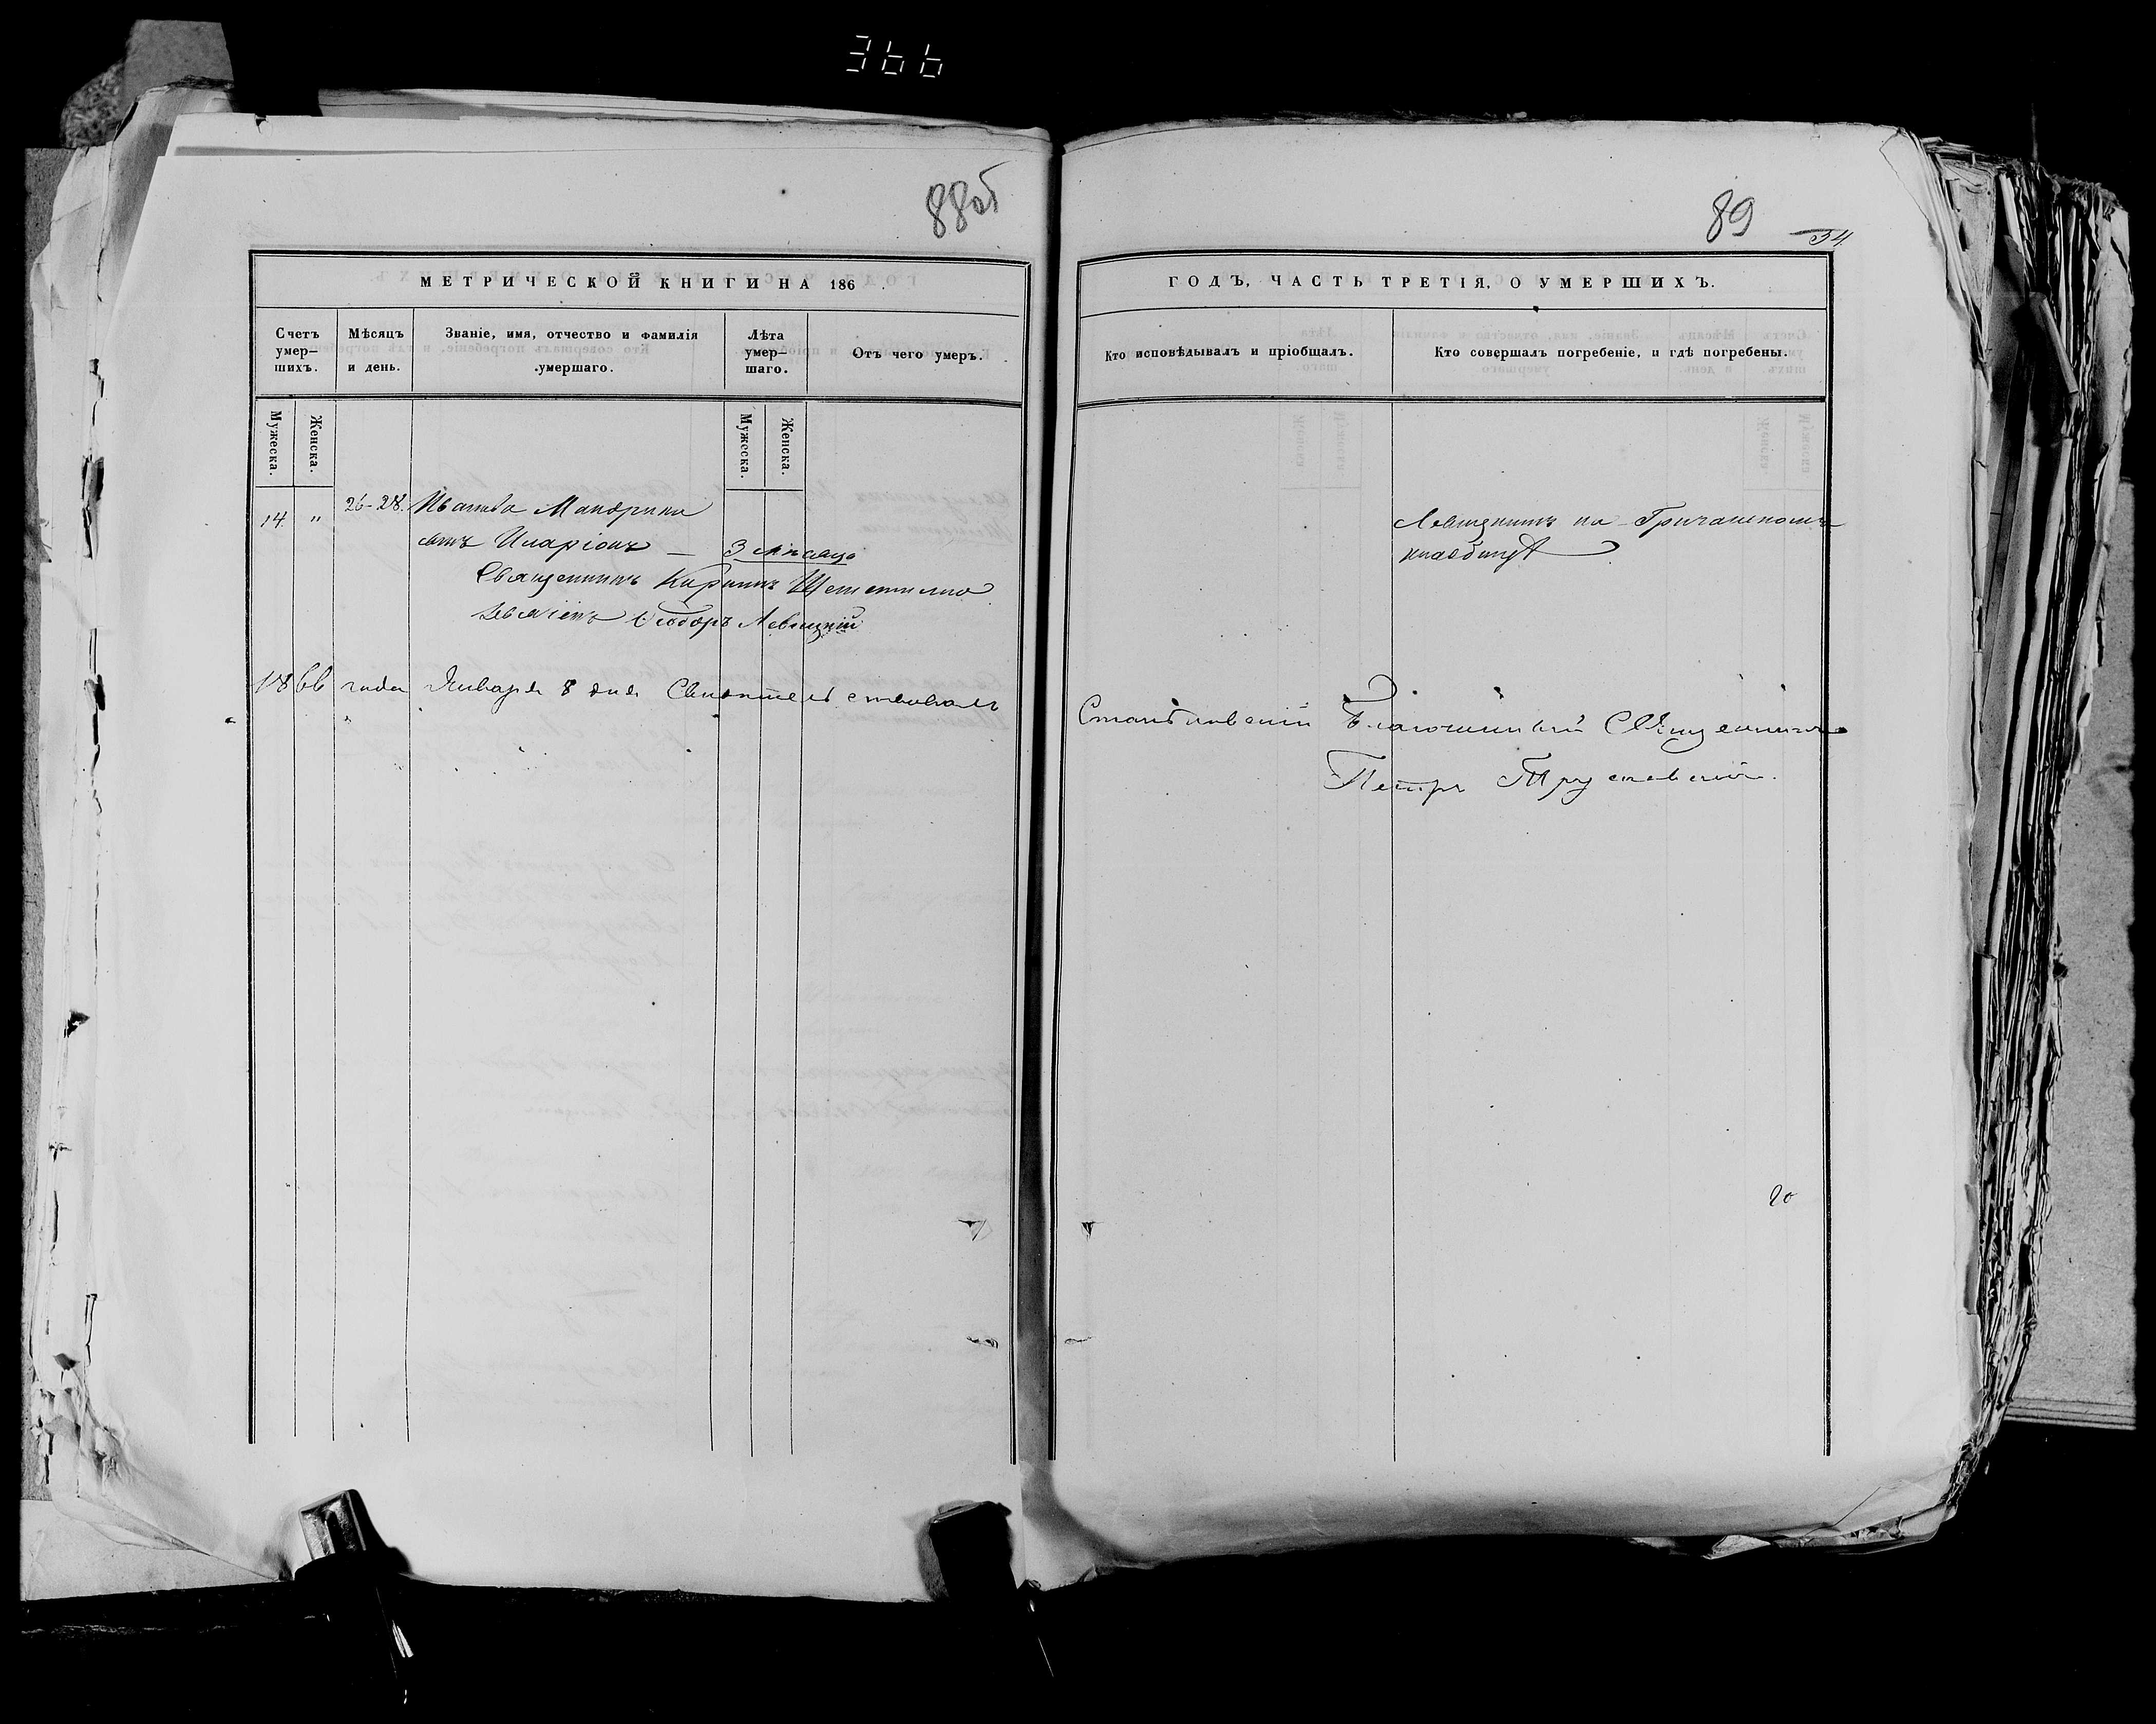 366
88об
МЕТРИЧЕСКОЙ КНИГИ НА 186 .
Счетъ умер- шихъ.
Мѣсяцъ и день.
Званіе, имя, отчество и фамилія умершаго.
Лѣта умер- шаго.
Отъ чего умеръ.
Мужеска. Женска.
Мужеска. Женска.
14 " 26-28.
сынъ Иларіонъ — 3 мѣсяца
Священникъ Кириллъ
Ѳеодоръ Левицкій
1866 года Января 8 дня Свидѣтельствовалъ
89
34
ГОДЪ, ЧАСТЬ ТРЕТІЯ, О УМЕРШИХЪ.
Кто исповѣдывалъ и пріобщалъ.
Кто совершалъ погребеніе, и гдѣ погребены.
на
кладбищѣ
Благочинный Священникъ
Петръ